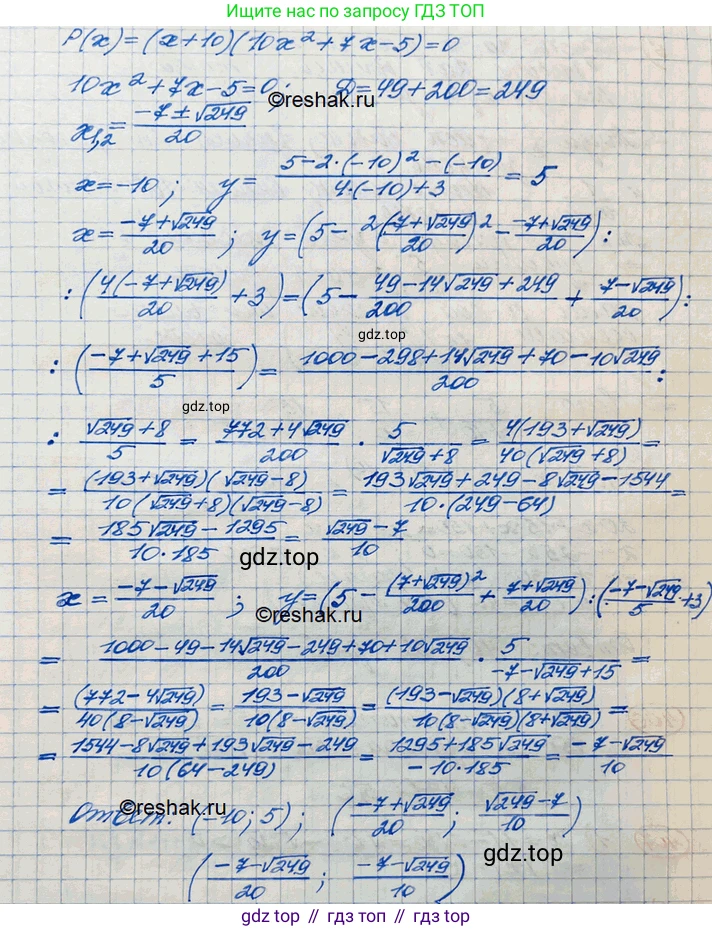 Ищите еще больше решений на сайте gdz.top
P(x) = (x+10)(10x² + 7x - 5) = 0
10x² + 7x - 5 = 0; D = 49 + 200 = 249
©reshak.ru
x₁,₂ = (-7 ± √249)/20
x = -10; y = (5 - 2·(-10)² - (-10))/(4·(-10) + 3) = 5
x = (-7 + √249)/20; y = (5 - 2((-7 + √249)/20)² - (-7 + √249)/20) :
: (4(-7 + √249)/20 + 3) = (5 - (49 - 14√249 + 249)/200 + (7 - √249)/20) :
gdz.top
: ((-7 + √249 + 15)/5) = (1000 - 298 + 14√249 + 70 - 10√249)/200 :
gdz.top
: (√249 + 8)/5 = (772 + 4√249)/200 · 5/(√249 + 8) = 4(193 + √249)/(40(√249 + 8)) =
= (193 + √249)(√249 - 8)/(10(√249 + 8)(√249 - 8)) = (193√249 + 249 - 8√249 - 1544)/(10·(249 - 64)) =
= (185√249 - 1295)/(10·185) = (√249 - 7)/10
gdz.top
x = (-7 - √249)/20; y = (5 - (7 + √249)²/200 + (7 + √249)/20) : ((-7 - √249)/5 + 3)
©reshak.ru
= (1000 - 49 - 14√249 - 249 + 70 + 10√249)/200 · 5/(-7 - √249 + 15) =
= (772 - 4√249)/(40(8 - √249)) = (193 - √249)/(10(8 - √249)) = (193 - √249)(8 + √249)/(10(8 - √249)(8 + √249)) =
= (1544 - 8√249 + 193√249 - 249)/(10(64 - 249)) = (1295 + 185√249)/(-10·185) = (-7 - √249)/10
©reshak.ru
Ответ: (-10; 5); ((-7 + √249)/20; (√249 - 7)/10)
gdz.top
((-7 - √249)/20; (-7 - √249)/10)
gdz.top // гдз.топ // gdz.top // гдз.топ // gdz.top